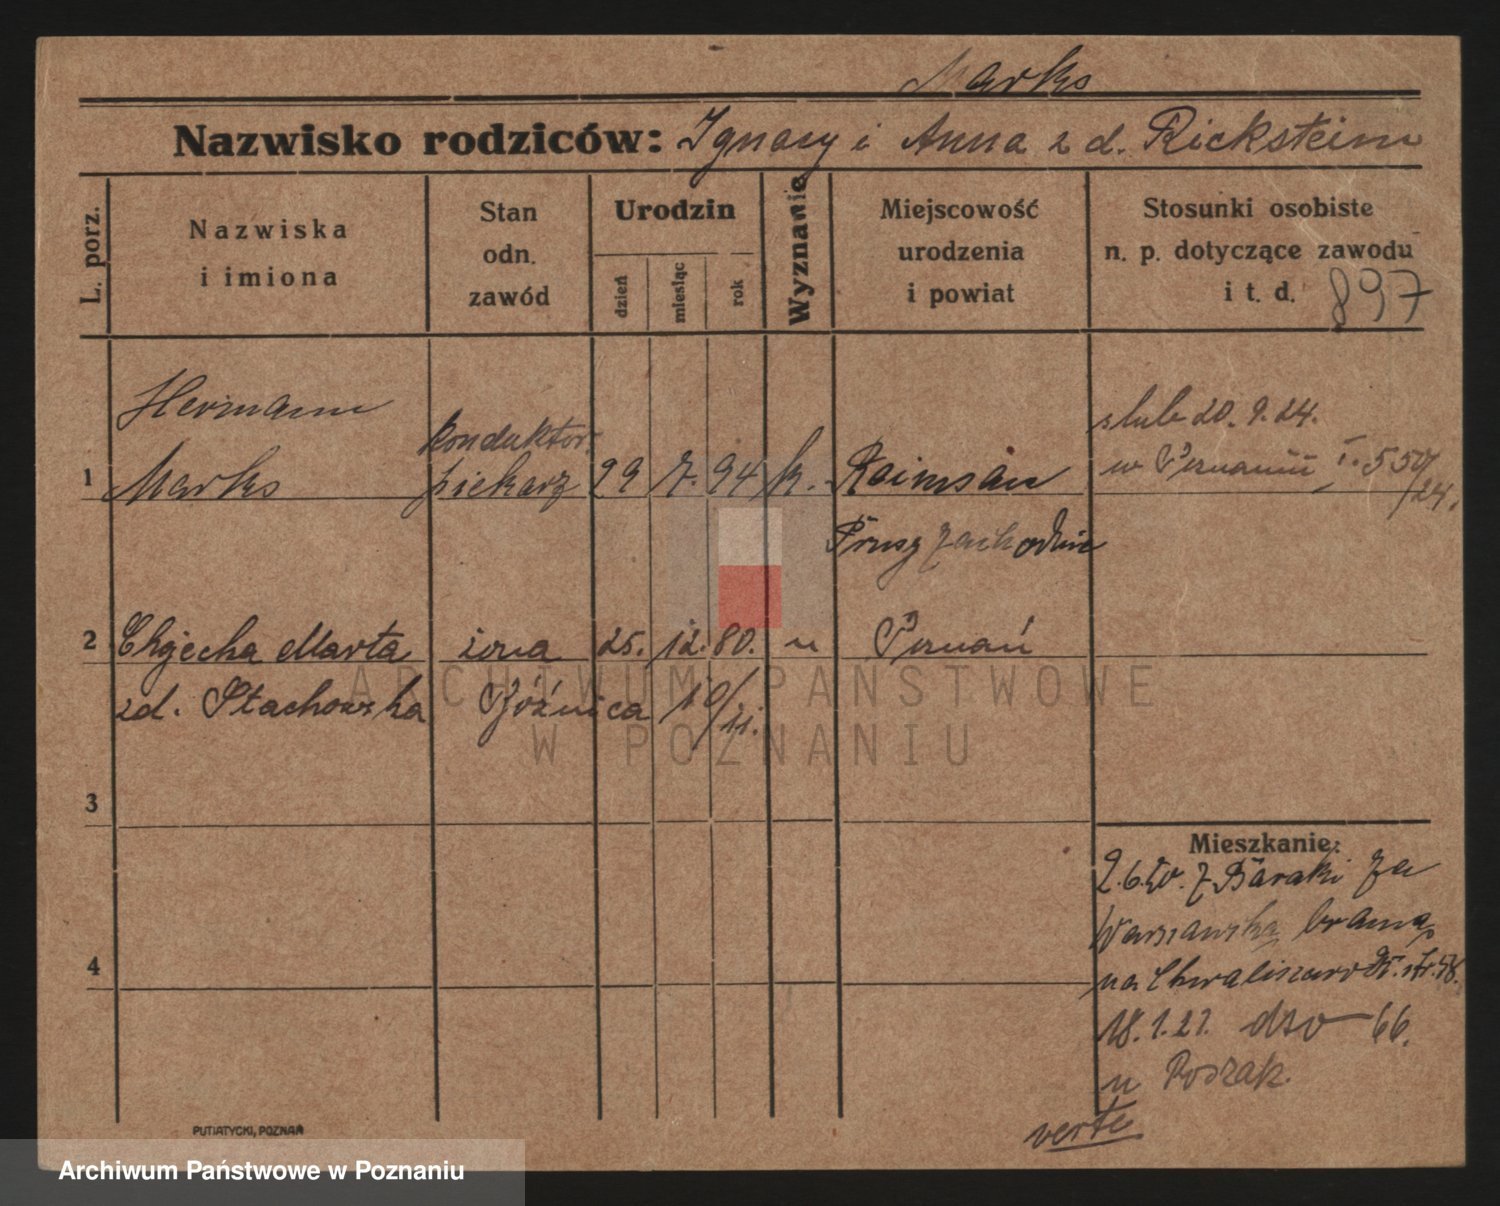 Marks
Nazwisko rodziców: Ignacy i Anna z d. Rickstein
L. porz.
Nazwiska
i imiona
Stan
odn.
zawód
Urodzin
dzień
miesiąc
rok
Wyznanie
Miejscowość
urodzenia
i powiat
Stosunki osobiste
n. p. dotyczące zawodu
i t. d. 897
Hermann
konduktor
1 Marks piekarz 29 7. 94 k. Raimsau
Prusy zachodnie
ślub 20. 9. 24.
w Poznaniu I. 550/24.
2 Chęcka Marta żona 25. 12. 80. " Poznań
zd. Stachowska Różnica 10/11.
3
4
Mieszkanie:
2.6.20. z Baraki za
Warszawską bramą
na Chwaliszewo str. 58.
18.1.21. dto 66.
u Roszak.
verte
PUTIATYCKI, POZNAŃ
ARCHIWUM PAŃSTWOWE
W POZNANIU
Archiwum Państwowe w Poznaniu